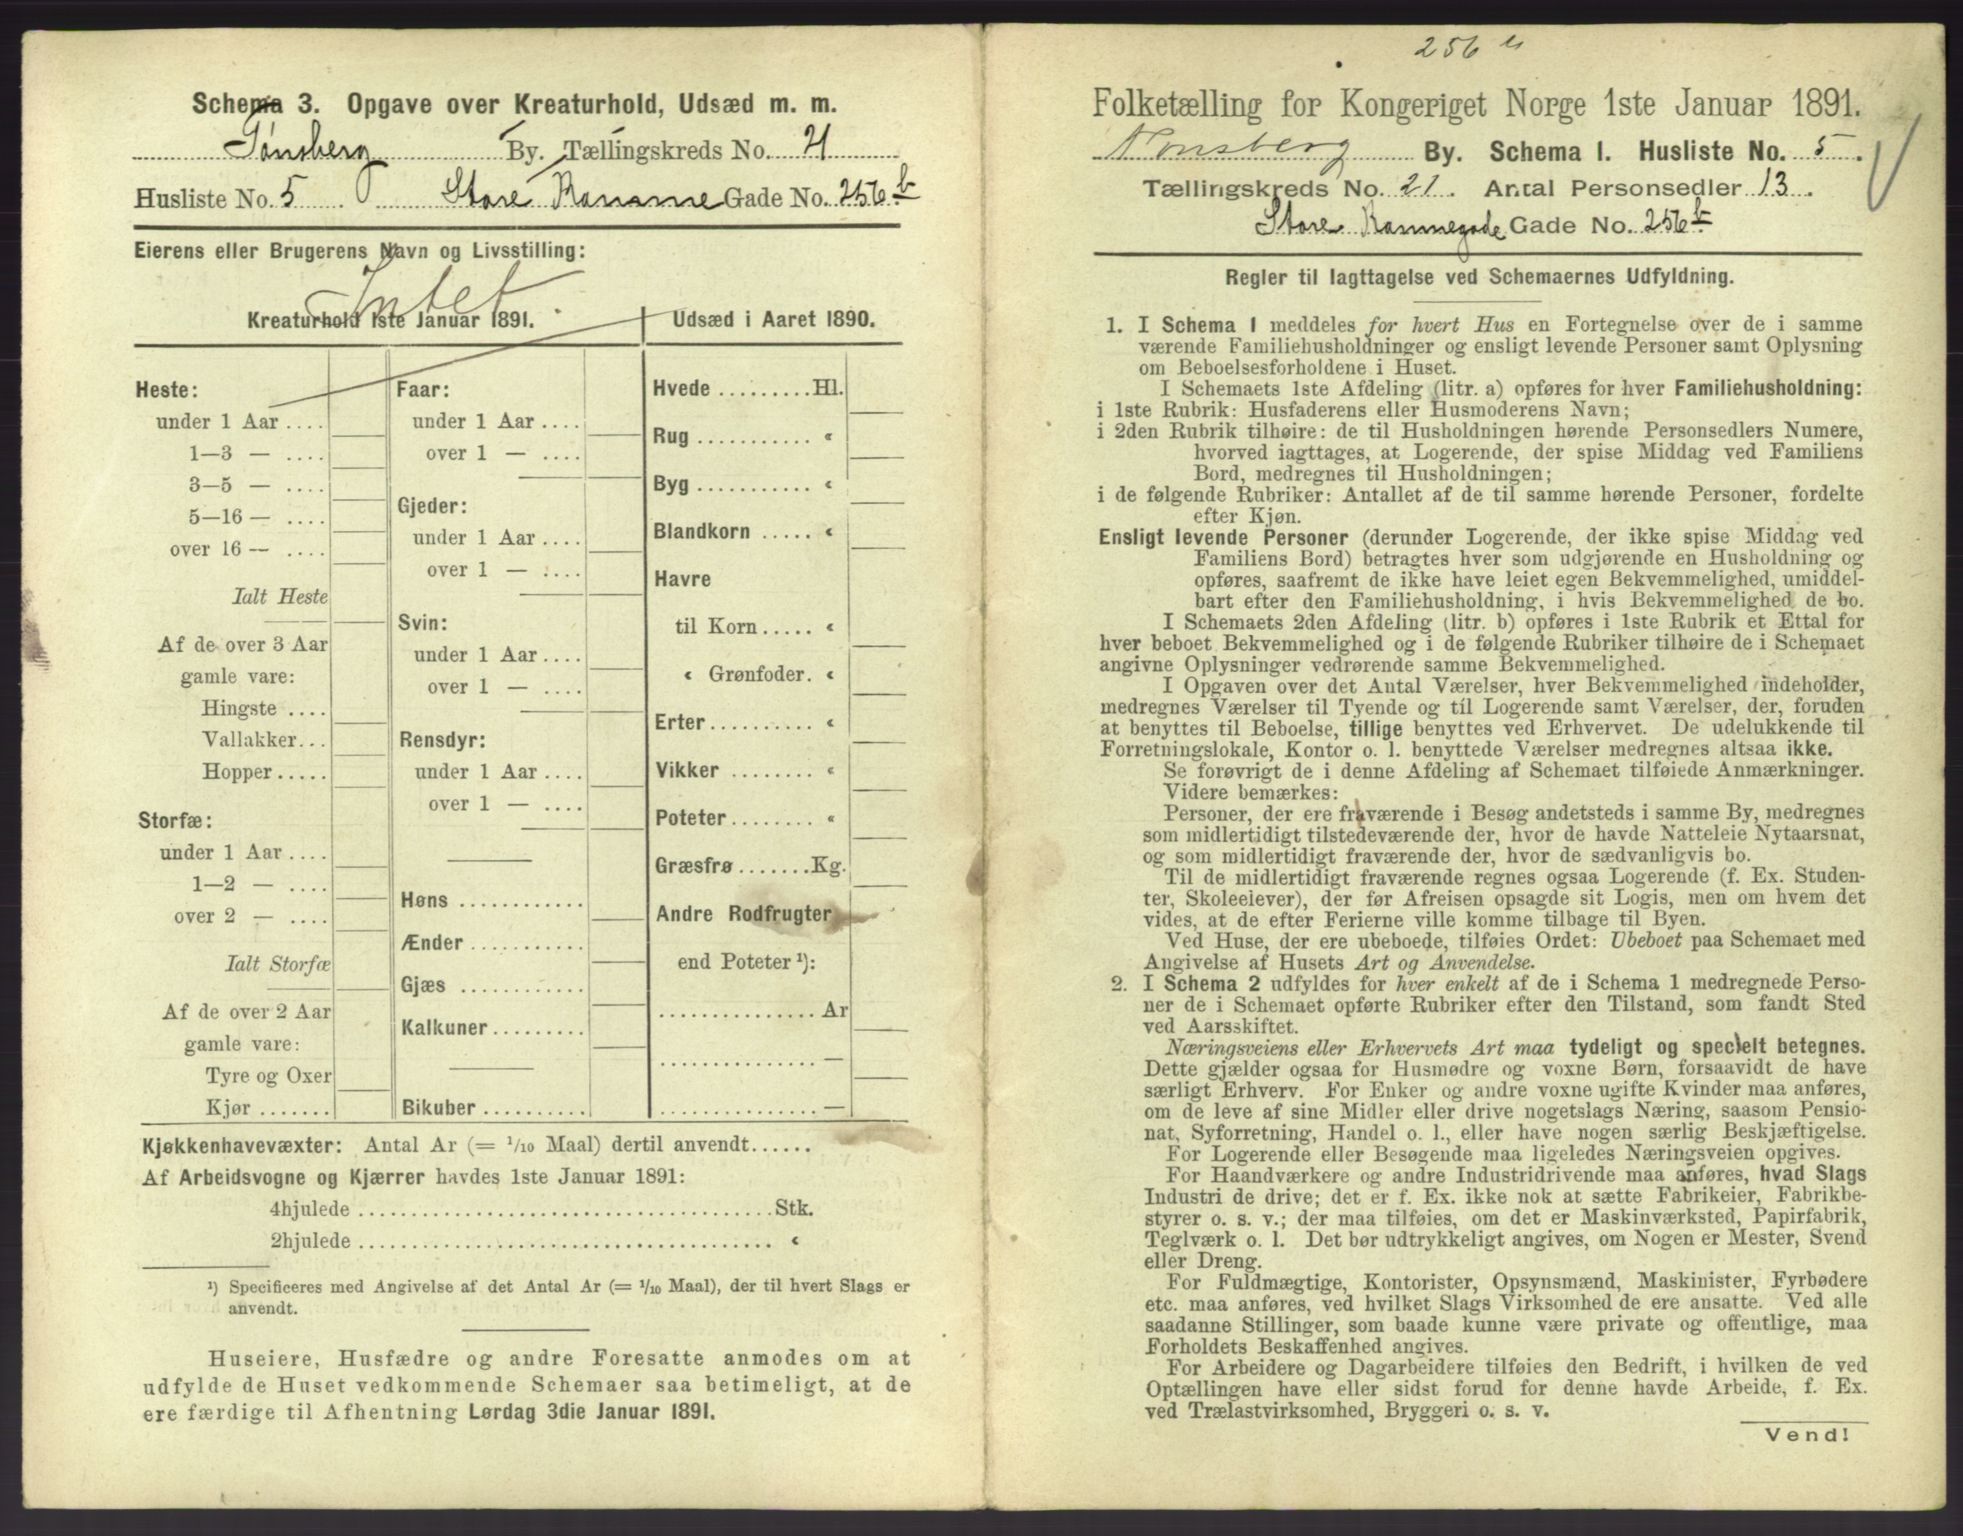 Schema 3. Opgave over Kreaturhold, Udsæd m. m.
Tønsberg By. Tællingskreds No. 21
Husliste No. 5 Store Ramme Gade No. 256 b
Eierens eller Brugerens Navn og Livsstilling:
Intet
Kreaturhold 1ste Januar 1891.
Heste:
under 1 Aar ....
1—3 — ....
3—5 — ....
5—16 — ....
over 16 — ....
Ialt Heste
Af de over 3 Aar
gamle vare:
Hingste ....
Vallakker...
Hopper.....
Storfæ:
under 1 Aar....
1—2 — ....
over 2 — ....
Ialt Storfæ
Af de over 2 Aar
gamle vare:
Tyre og Oxer
Kjør.......
Faar:
under 1 Aar....
over 1 — ....
Gjeder:
under 1 Aar....
over 1 — ....
Svin:
under 1 Aar....
over 1 — ....
Rensdyr:
under 1 Aar....
over 1 — ....
Høns...........
Ænder..........
Gjæs ...........
Kalkuner.........
Bikuber..........
Udsæd i Aaret 1890.
Hvede.........Hl.
Rug........... «
Byg........... «
Blandkorn ..... «
Havre
til Korn..... «
« Grønfoder. «
Erter.......... «
Vikker ........ «
Poteter........ «
Græsfrø.......Kg.
Andre Rodfrugter
end Poteter ¹):
............... Ar
............... —
............... —
Kjøkkenhavevæxter: Antal Ar (= 1/10 Maal) dertil anvendt......
Af Arbeidsvogne og Kjærrer havdes 1ste Januar 1891:
4hjulede ......................................Stk.
2hjulede ...................................... «
¹) Specificeres med Angivelse af det Antal Ar (= 1/10 Maal), der til hvert Slags er
anvendt.
Huseiere, Husfædre og andre Foresatte anmodes om at
udfylde de Huset vedkommende Schemaer saa betimeligt, at de
ere færdige til Afhentning Lørdag 3die Januar 1891.
256
Folketælling for Kongeriget Norge 1ste Januar 1891.
Tønsberg By. Schema I. Husliste No. 5.
Tællingskreds No. 21. Antal Personsedler 13.
Store Rammegade Gade No. 256 b
Regler til Iagttagelse ved Schemaernes Udfyldning.
1. I Schema I meddeles for hvert Hus en Fortegnelse over de i samme
værende Familiehusholdninger og ensligt levende Personer samt Oplysning
om Beboelsesforholdene i Huset.
I Schemaets 1ste Afdeling (litr. a) opføres for hver Familiehusholdning:
i 1ste Rubrik: Husfaderens eller Husmoderens Navn;
i 2den Rubrik tilhøire: de til Husholdningen hørende Personsedlers Numere,
hvorved iagttages, at Logerende, der spise Middag ved Familiens
Bord, medregnes til Husholdningen;
i de følgende Rubriker: Antallet af de til samme hørende Personer, fordelte
efter Kjøn.
Ensligt levende Personer (derunder Logerende, der ikke spise Middag ved
Familiens Bord) betragtes hver som udgjørende en Husholdning og
opføres, saafremt de ikke have leiet egen Bekvemmelighed, umiddel-
bart efter den Familiehusholdning, i hvis Bekvemmelighed de bo.
I Schemaets 2den Afdeling (litr. b) opføres i 1ste Rubrik et Ettal for
hver beboet Bekvemmelighed og i de følgende Rubriker tilhøire de i Schemaet
angivne Oplysninger vedrørende samme Bekvemmelighed.
I Opgaven over det Antal Værelser, hver Bekvemmelighed indeholder,
medregnes Værelser til Tyende og til Logerende samt Værelser, der, foruden
at benyttes til Beboelse, tillige benyttes ved Erhvervet. De udelukkende til
Forretningslokale, Kontor o. l. benyttede Værelser medregnes altsaa ikke.
Se forøvrigt de i denne Afdeling af Schemaet tilføiede Anmærkninger.
Videre bemærkes:
Personer, der ere fraværende i Besøg andetsteds i samme By, medregnes
som midlertidigt tilstedeværende der, hvor de havde Natteleie Nytaarsnat,
og som midlertidigt fraværende der, hvor de sædvanligvis bo.
Til de midlertidigt fraværende regnes ogsaa Logerende (f. Ex. Studen-
ter, Skoleelever), der før Afreisen opsagde sit Logis, men om hvem det
vides, at de efter Ferierne ville komme tilbage til Byen.
Ved Huse, der ere ubeboede, tilføies Ordet: Ubeboet paa Schemaet med
Angivelse af Husets Art og Anvendelse.
2. I Schema 2 udfyldes for hver enkelt af de i Schema 1 medregnede Perso-
ner de i Schemaet opførte Rubriker efter den Tilstand, som fandt Sted
ved Aarsskiftet.
Næringsveiens eller Erhvervets Art maa tydeligt og specielt betegnes.
Dette gjælder ogsaa for Husmødre og voxne Børn, forsaavidt de have
særligt Erhverv. For Enker og andre voxne ugifte Kvinder maa anføres,
om de leve af sine Midler eller drive nogetslags Næring, saasom Pensio-
nat, Syforretning, Handel o. l., eller have nogen særlig Beskjæftigelse.
For Logerende eller Besøgende maa ligeledes Næringsveien opgives.
For Haandværkere og andre Industridrivende maa anføres, hvad Slags
Industri de drive; det er f. Ex. ikke nok at sætte Fabrikeier, Fabrikbe-
styrer o. s. v.; der maa tilføies, om det er Maskinværksted, Papirfabrik,
Teglværk o. l. Det bør udtrykkeligt angives, om Nogen er Mester, Svend
eller Dreng.
For Fuldmægtige, Kontorister, Opsynsmænd, Maskinister, Fyrbødere
etc. maa anføres, ved hvilket Slags Virksomhed de ere ansatte. Ved alle
saadanne Stillinger, som baade kunne være private og offentlige, maa
Forholdets Beskaffenhed angives.
For Arbeidere og Dagarbeidere tilføies den Bedrift, i hvilken de ved
Optællingen have eller sidst forud for denne havde Arbeide, f. Ex.
ved Trælastvirksomhed, Bryggeri o. s. v.
Vend!